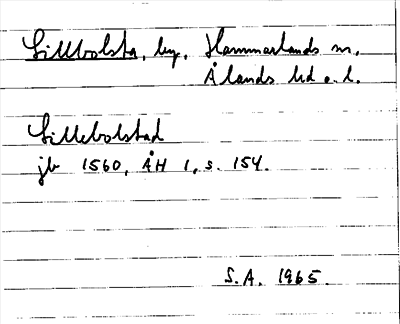 Lillbolsta, by, Hammarlands sn,
Ålands hd o. l.
Lillebolstad
jb 1560, ÅH 1, s. 154.
S.A. 1965.